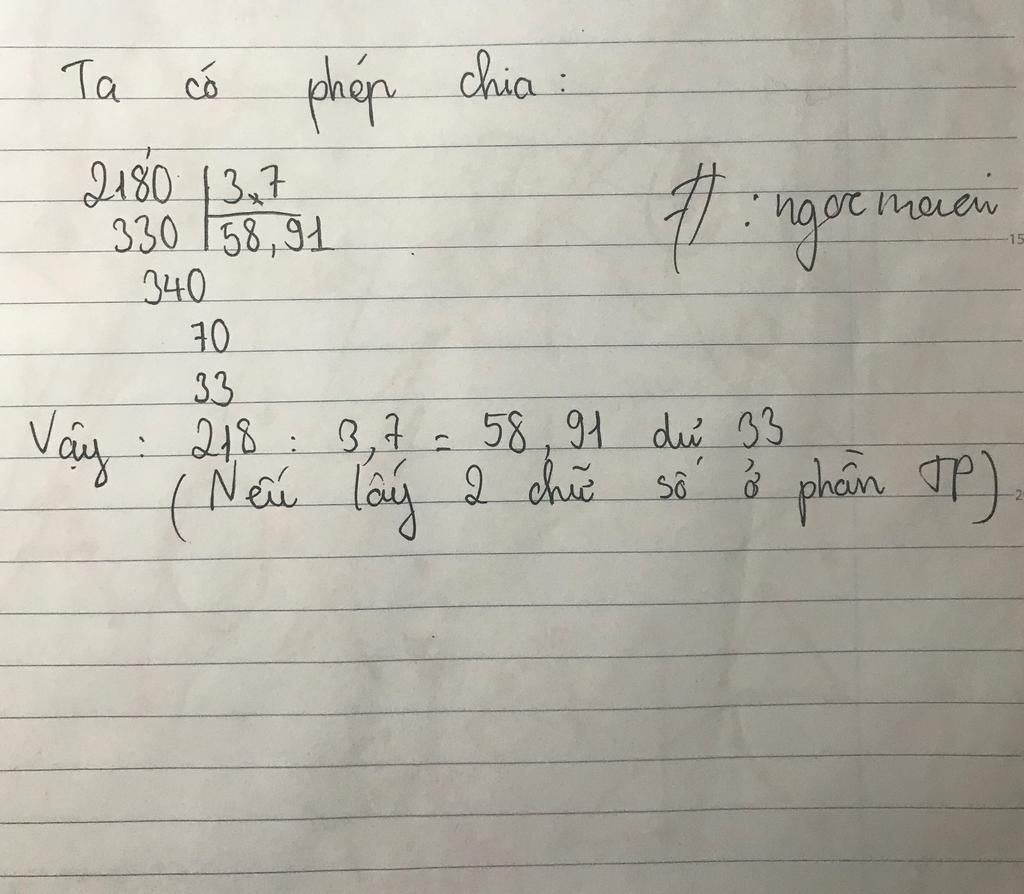 Ta có phép chia :
2180 | 3,7
330 | 58,91
# : ngocmaen
340
70
33
Vậy : 218 : 3,7 = 58,91 dư 33
(Nếu lấy 2 chữ số ở phần TP)
15
2